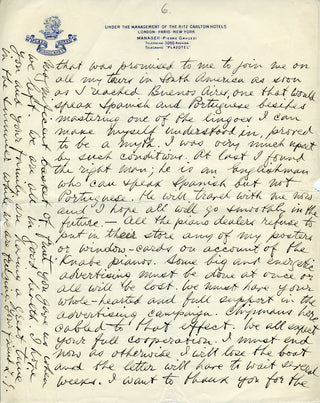 6.
UNDER THE MANAGEMENT OF THE RITZ CARLTON HOTELS
LONDON-PARIS-NEW YORK
MANAGER-PIERRE
TELEPHONE: AVENIDA
TELEGRAMS "PLAZOTEL"
that was promised to me to join me on
all my tours in South America as soon
as I reached Buenos Aires, one that would
speak Spanish and Portuguese besides
mastering one of the lingoes I can
make myself understood in, proved
to be a myth. I was very much upset
by such conditions. At last I found
the right man; he is an Englishman
who can speak Spanish but not
Portuguese. He will travel with me now
and I hope all will go smoothly in the
future. — All the piano dealers refuse to
put in their store any of my posters
or window-cards on account of the
Knabe pianos. Some big and energetic
advertising must be done at once or
all will be lost. We must have your
whole-hearted and full support in the
advertising campaign. Chipmans here
cabled to that effect. We all expect
your full cooperation. I must end
now as otherwise I will lose the boat
and the letter will have to wait several
weeks. I want to thank you for the
magnificent basket of fruit you gave us when
we left. We are all in good health. I hope
you and your family are having a great time
in the